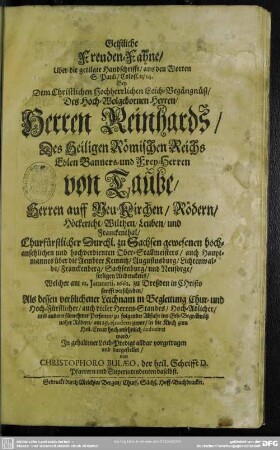 Geistliche
Freuden-Fahne/
Uber die getilgte Handschrifft/ aus den Worten
S. Pauli/ Coloss. 2/ 14.
Bey
Dem Christlichen Hochherrlichen Leich-Begängnüß/
Des Hoch-Wolgebornen Herren/
Herren Reinhards/
Des Heiligen Römischen Reichs
Edlen Banners und Frey-Herren
von Taube/
Herren auff Neu-Kirchen/ Rödern/
Höckericht/ Wilthen/ Leuben/ und
Franckenthal/
Churfürstlicher Durchl. zu Sachsen gewesenen hoch-
ansehlichen und hochverdienten Ober-Stallmeisters/ auch Haupt-
mannes über die Aembter Augustusburg/ Lichtenwal-
de/ Franckenberg/ Sachsenburg/ und Neusorge/
seeligen Andenckens/
Welcher am Januarii, 1662. zu Dresden in Christo
sanfft verschieden/
Als dessen verblichener Leichnam in Begleitung Chur- und
Hoch-Fürstlicher/ auch vieler Herren-Standes/ Hoch-Adelicher/
und anderer fürnehmer Personen/ zu
in der Kirch zum
Heil. Creutz
ward/
In gehaltener Leich-Predigt alldar vorgetragen
und fürgestellet/
von
CHRISTOPHORO BULÆO, der heil. Schrifft D.
Pfarrern und Superintendenten daselbst.
Gedruckt durch Melchior Bergen/ Churf. Sächs. Hoff-Buchdrucker.